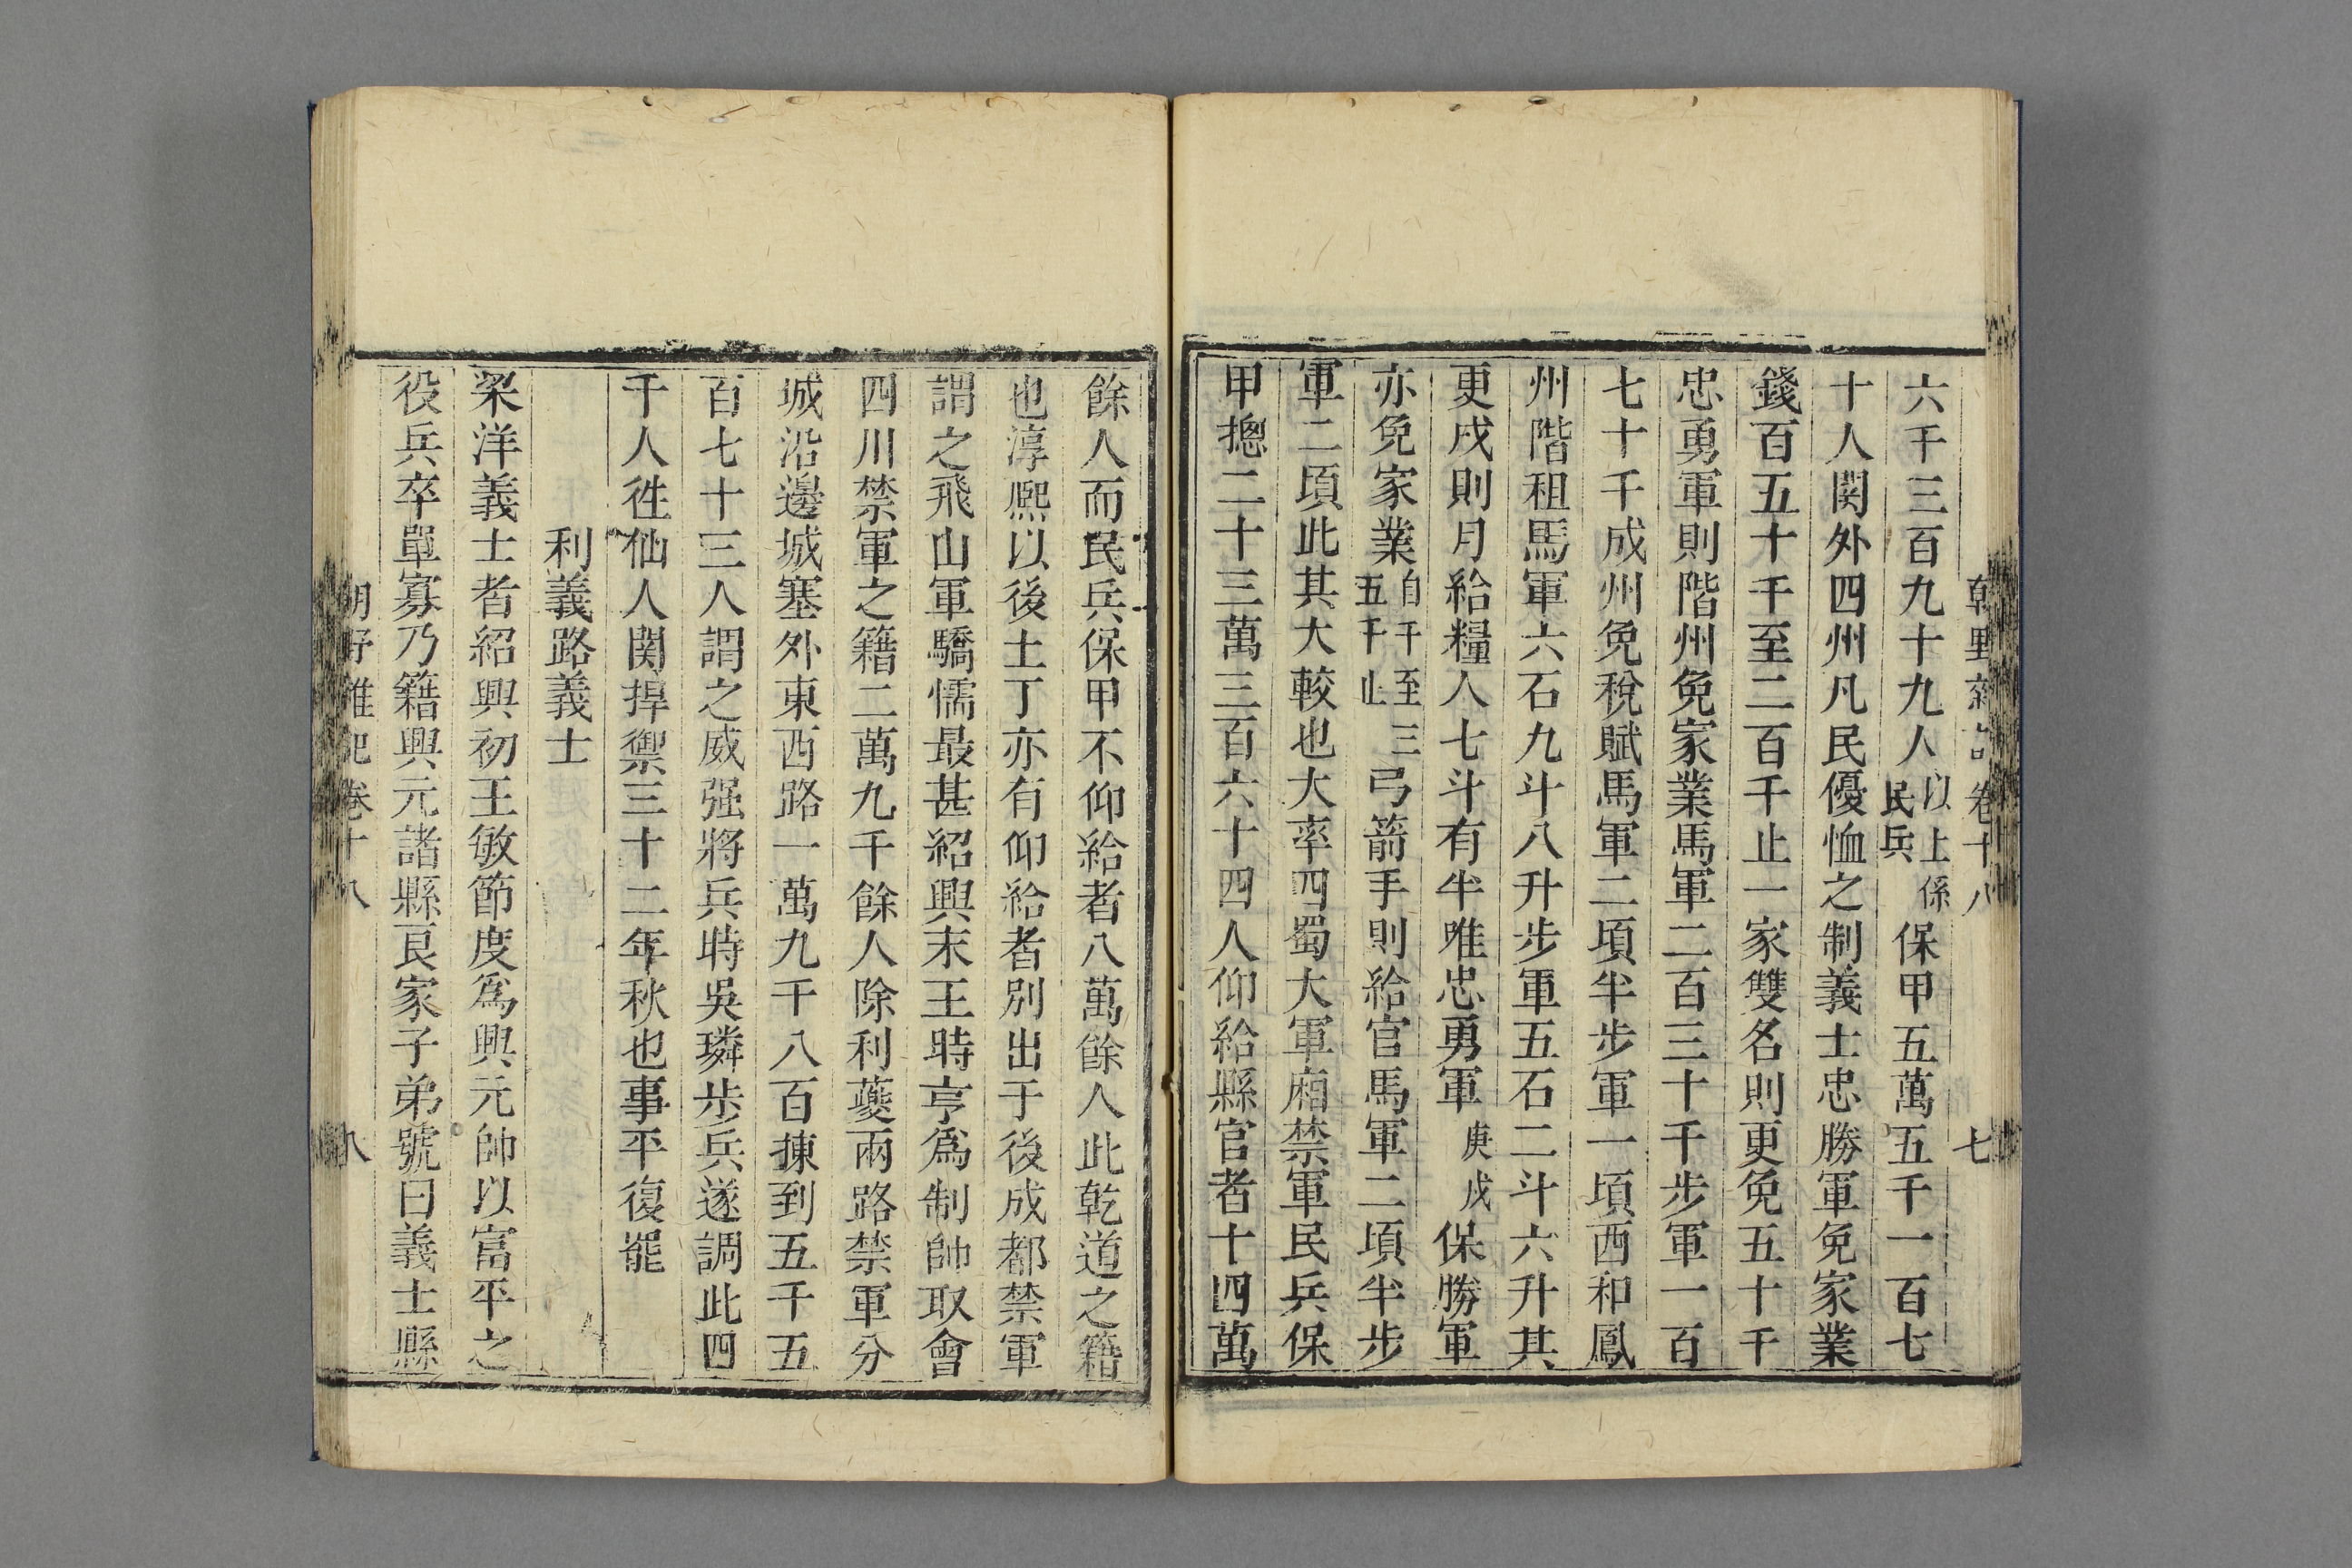 朝野雜記卷十八 七
六千三百九十九人以上係民兵保甲五萬五千一百七
十人関外四州凡民優恤之制義士忠勝軍免家業
錢百五十千至二百千止一家雙名則更免五十千
忠勇軍則階州免家業馬軍二百三十千步軍一百
七十千成州免稅賦馬軍二頃半步軍一頃西和鳳
州階租馬軍六石九斗八升步軍五石二斗六升其
更戍則月給糧人七斗有半唯忠勇軍庚戍保勝軍
亦免家業自千至三五千止弓箭手則給官馬軍二頃半步
軍二頃此其大較也大率四蜀大軍廂禁軍民兵保
甲摠二十三萬三百六十四人仰給縣官者十四萬
餘人而民兵保甲不仰給者八萬餘人此乾道之籍
也淳熙以後土丁亦有仰給者別出于後成都禁軍
謂之飛山軍驕懦最甚紹興末王時亨爲制帥取會
四川禁軍之籍二萬九千餘人除利夔兩路禁軍分
城沿邊城塞外東西路一萬九千八百揀到五千五
百七十三人謂之威强將兵時吳璘步兵遂調此四
千人徃仙人関捍禦三十二年秋也事平復罷
利義路義士
梁洋義士者紹興初王敏節度爲興元帥以富平之
役兵卒單寡乃籍興元諸縣良家子弟號曰義士縣
朝野雜記卷十八 八